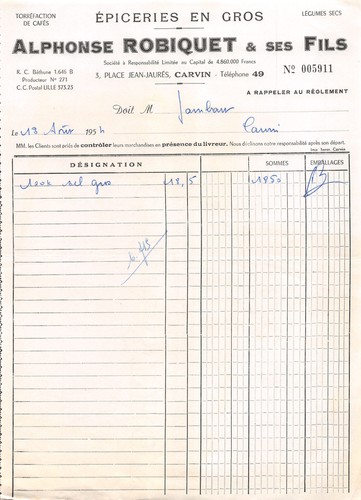 TORRÉFACTION
DE CAFÉS
ÉPICERIES EN GROS
LÉGUMES SECS
ALPHONSE ROBIQUET & SES FILS
Société à Responsabilité Limitée au Capital de 4.860.000 Francs
R. C. Béthune 1.646 B
Producteur Nº 271
C. C. Postal LILLE 373.23
3, PLACE JEAN-JAURÈS, CARVIN - Téléphone 49
Nº 005911
A RAPPELER AU RÉGLEMENT
Doit M
le 18 Août 1954
MM. les Clients sont priés de contrôler leurs marchandises en présence du livreur. Nous déclinons notre responsabilité après son départ.
DÉSIGNATION
SOMMES
EMBALLAGES
sel gros 18,5 1850